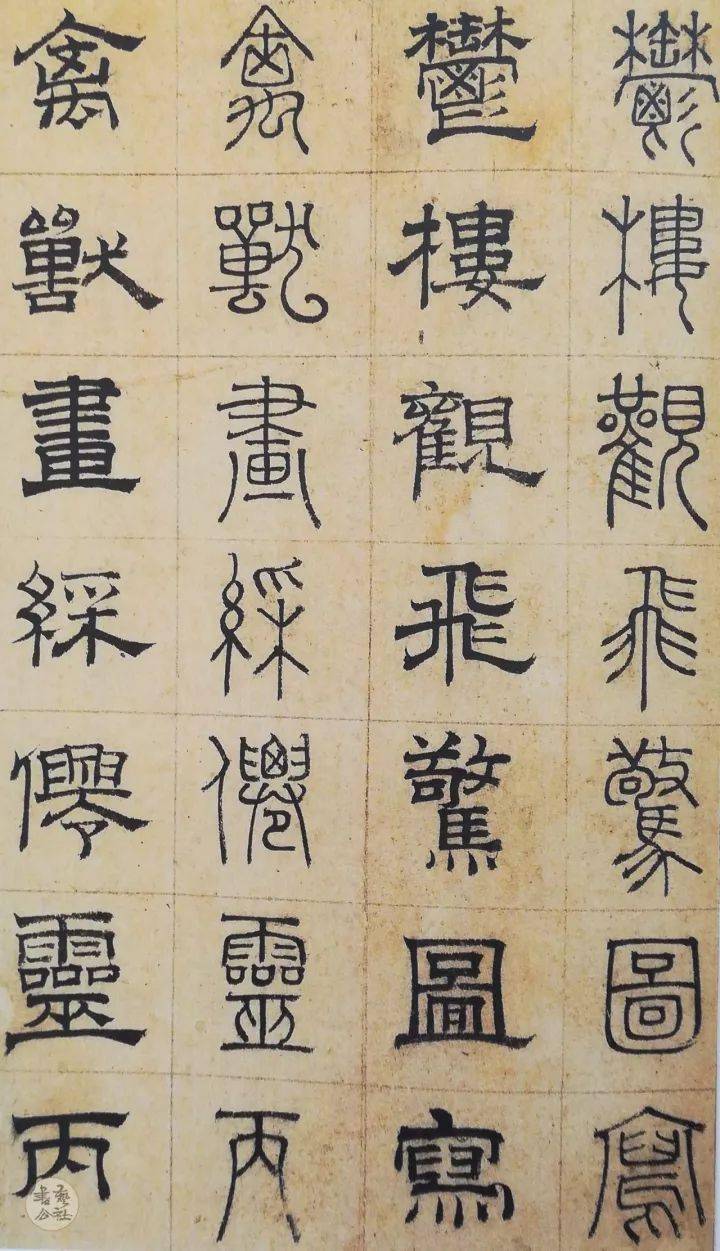 鬱樓觀飛驚圖寫
鬱樓觀飛驚圖寫
禽獸畫綵僊靈丙
禽獸畫綵僊靈丙